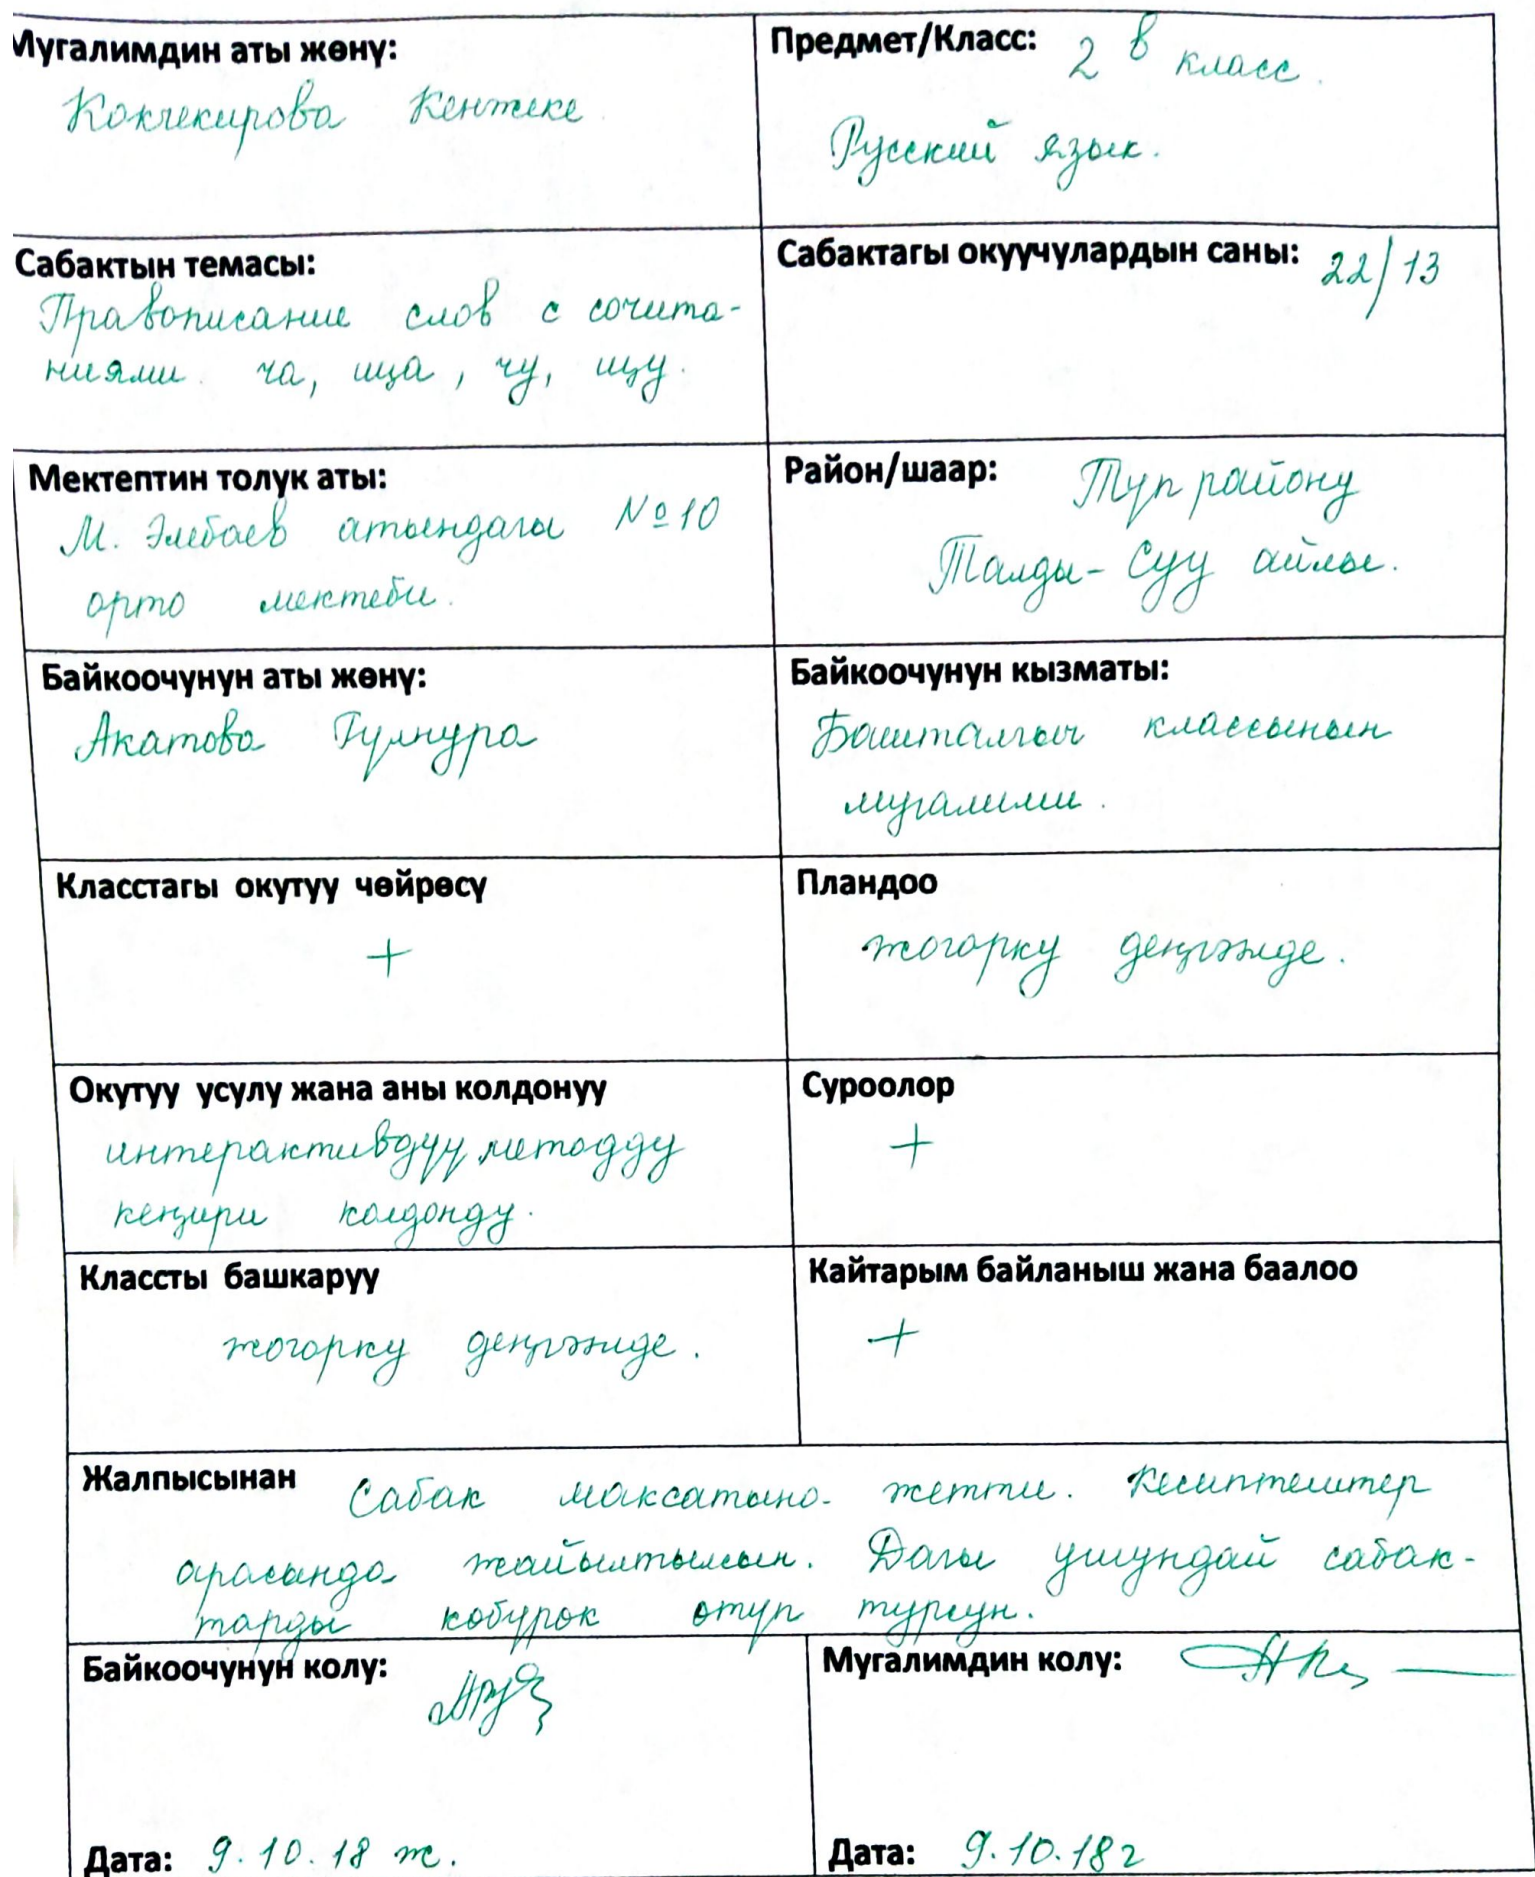 Мугалимдин аты жөнү:
Кокчекирова Кенжеке
Предмет/Класс: 2 в класс.
Русский язык.
Сабактын темасы:
Правописание слов с сочита-
ниями ча, ща, чу, щу.
Сабактагы окуучулардын саны: 22/13
Мектептин толук аты:
М. Элебаев атындагы №10
орто мектеби.
Район/шаар: Туп району
Талды-Суу айлы.
Байкоочунун аты жөнү:
Акатова Гулнура
Байкоочунун кызматы:
Башталгыч классынын
мугалими.
Класстагы окутуу чөйрөсү
+
Пландоо
жогорку деңгээлде.
Окутуу усулу жана аны колдонуу
интерактивдүү методду
кеңири колдонду.
Суроолор
+
Классты башкаруу
жогорку деңгээлде.
Кайтарым байланыш жана баалоо
+
Жалпысынан Сабак максатына жетти. Кесиптештер
арасында жайылтылсын. Дагы ушундай сабак-
тарды көбүрөк өтүп турсун.
Байкоочунун колу:
Дата: 9.10.18 ж.
Мугалимдин колу:
Дата: 9.10.18г